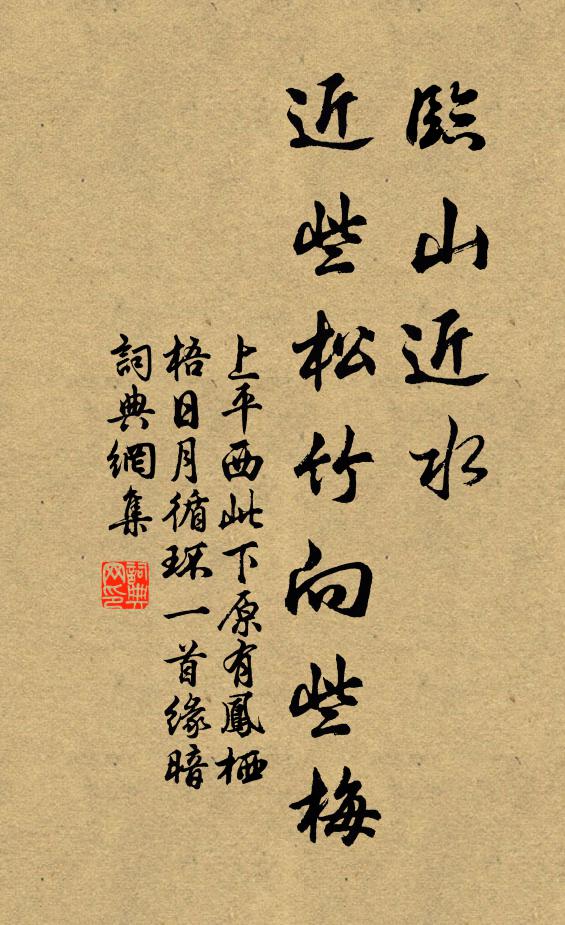 臨山近水
近些松竹向些梅
上平西此下原有鳳栖
梧日月循环一首缘暗
詞典網集
詞典网印